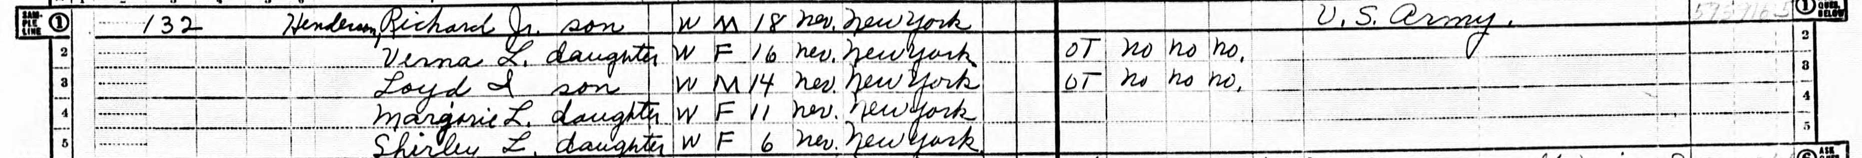 SAM-PLE LINE 1 132 Henderson, Richard Jr. son W M 18 nev. New York U.S. Army. 1 QUES. BELOW
2 Verna L. daughter W F 16 nev. New York OT no no no. 2
3 Loyd I son W M 14 nev. New York OT no no no. 3
4 Marjorie L. daughter W F 11 nev. New York 4
5 Shirley L. daughter W F 6 nev. New York. 5